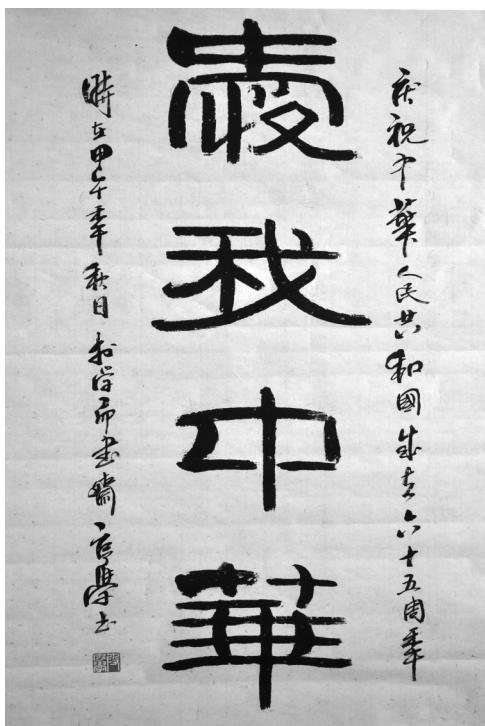 庆祝中華人民共和國成立六十五周年
愛我中華
時在甲午年秋日於
書齋
書